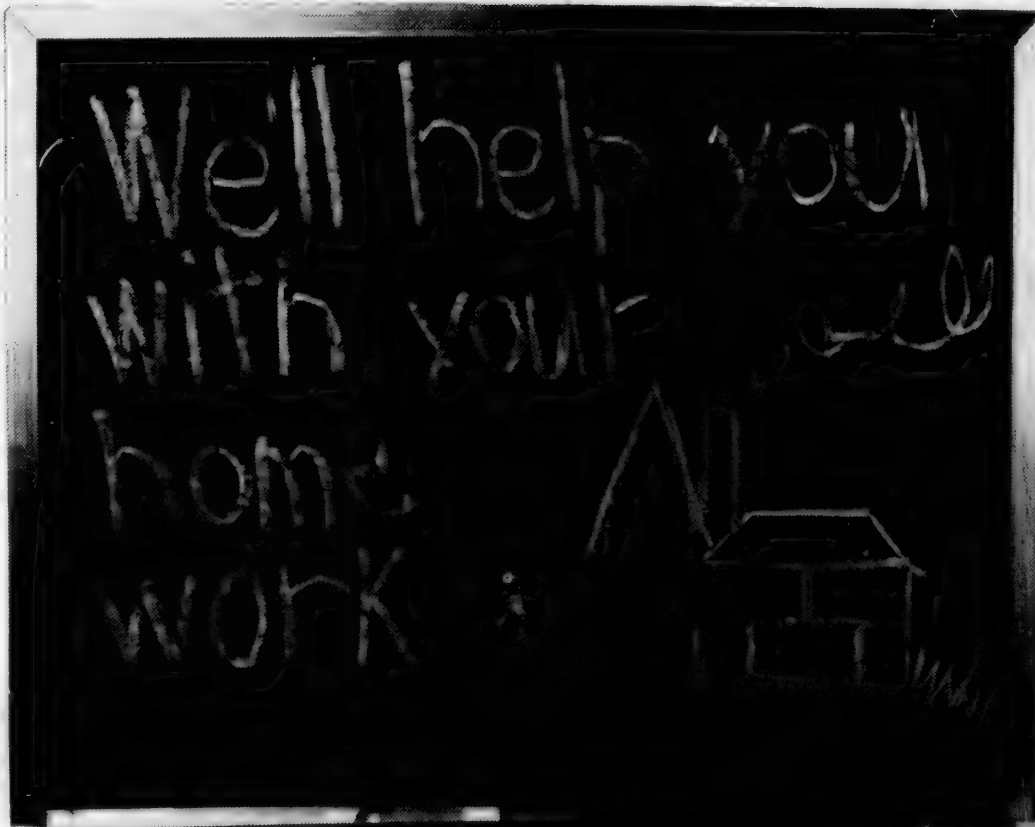 Well help you
with your
home
work